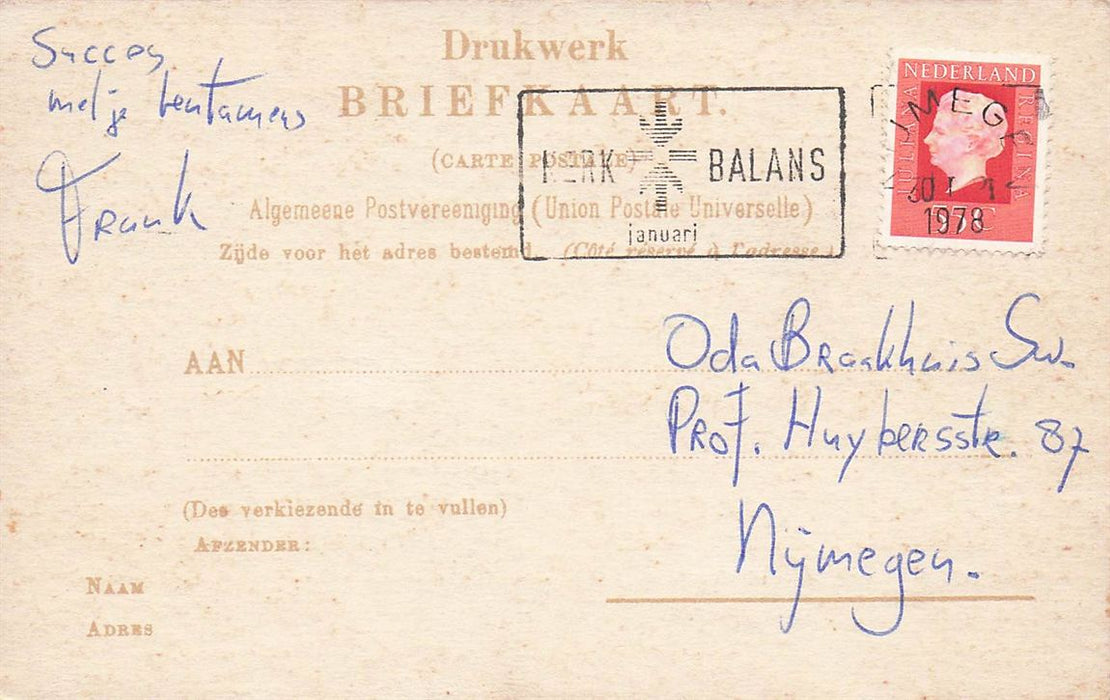 Succes
met je tentamens
Frank
Drukwerk
BRIEFKAART.
(CARTE POSTALE)
Algemeene Postvereeniging (Union Postale Universelle)
Zijde voor het adres bestemd. (Côté réservé à l'adresse.)
KERK BALANS
januari
NEDERLAND
JULIANA
REGINA
55C
IJMEGE
1978
AAN
Oda Braakhuis Sw.
Prof. Huybersstr. 87
Nijmegen.
(Des verkiezende in te vullen)
AFZENDER:
NAAM
ADRES